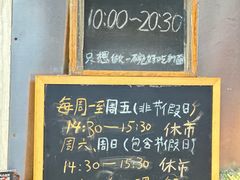 10:00~20:30
只想做一碗好吃的面
每周一至周五(非节假日)
14:30——15:30 休市
周六、周日(包含节假日)
14:30——15:30 休市